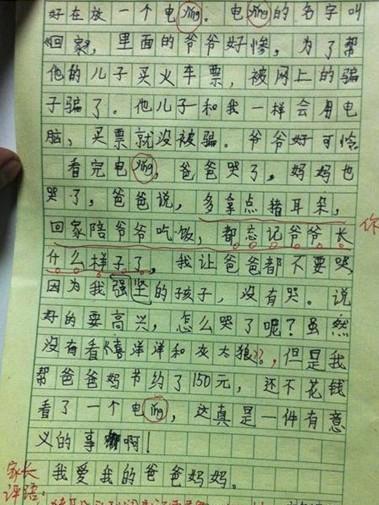 好在放一个电ying。电ying的名字叫
《回家》，里面的爷爷好惨，为了帮
他的儿子买火车票，被网上的骗
子骗了。他儿子和我一样会用电
脑，买票就没被骗。爷爷好可怜
看完电ying，爸爸哭了，妈妈也
哭了，爸爸说，多拿点猪耳朵，
回家陪爷爷吃饭，都忘记爷爷长
什么样子了，我让爸爸都不要哭
因为我强坚的孩子，没有哭。说
好的要高兴，怎么哭了呢？虽然
没有看《喜洋洋和灰太狼》，但是我
帮爸爸妈节约了150元，还不花钱
看了一个电ying，这真是一件有意
义的事啊！
我爱我的爸爸妈妈。
你
家长
评语：